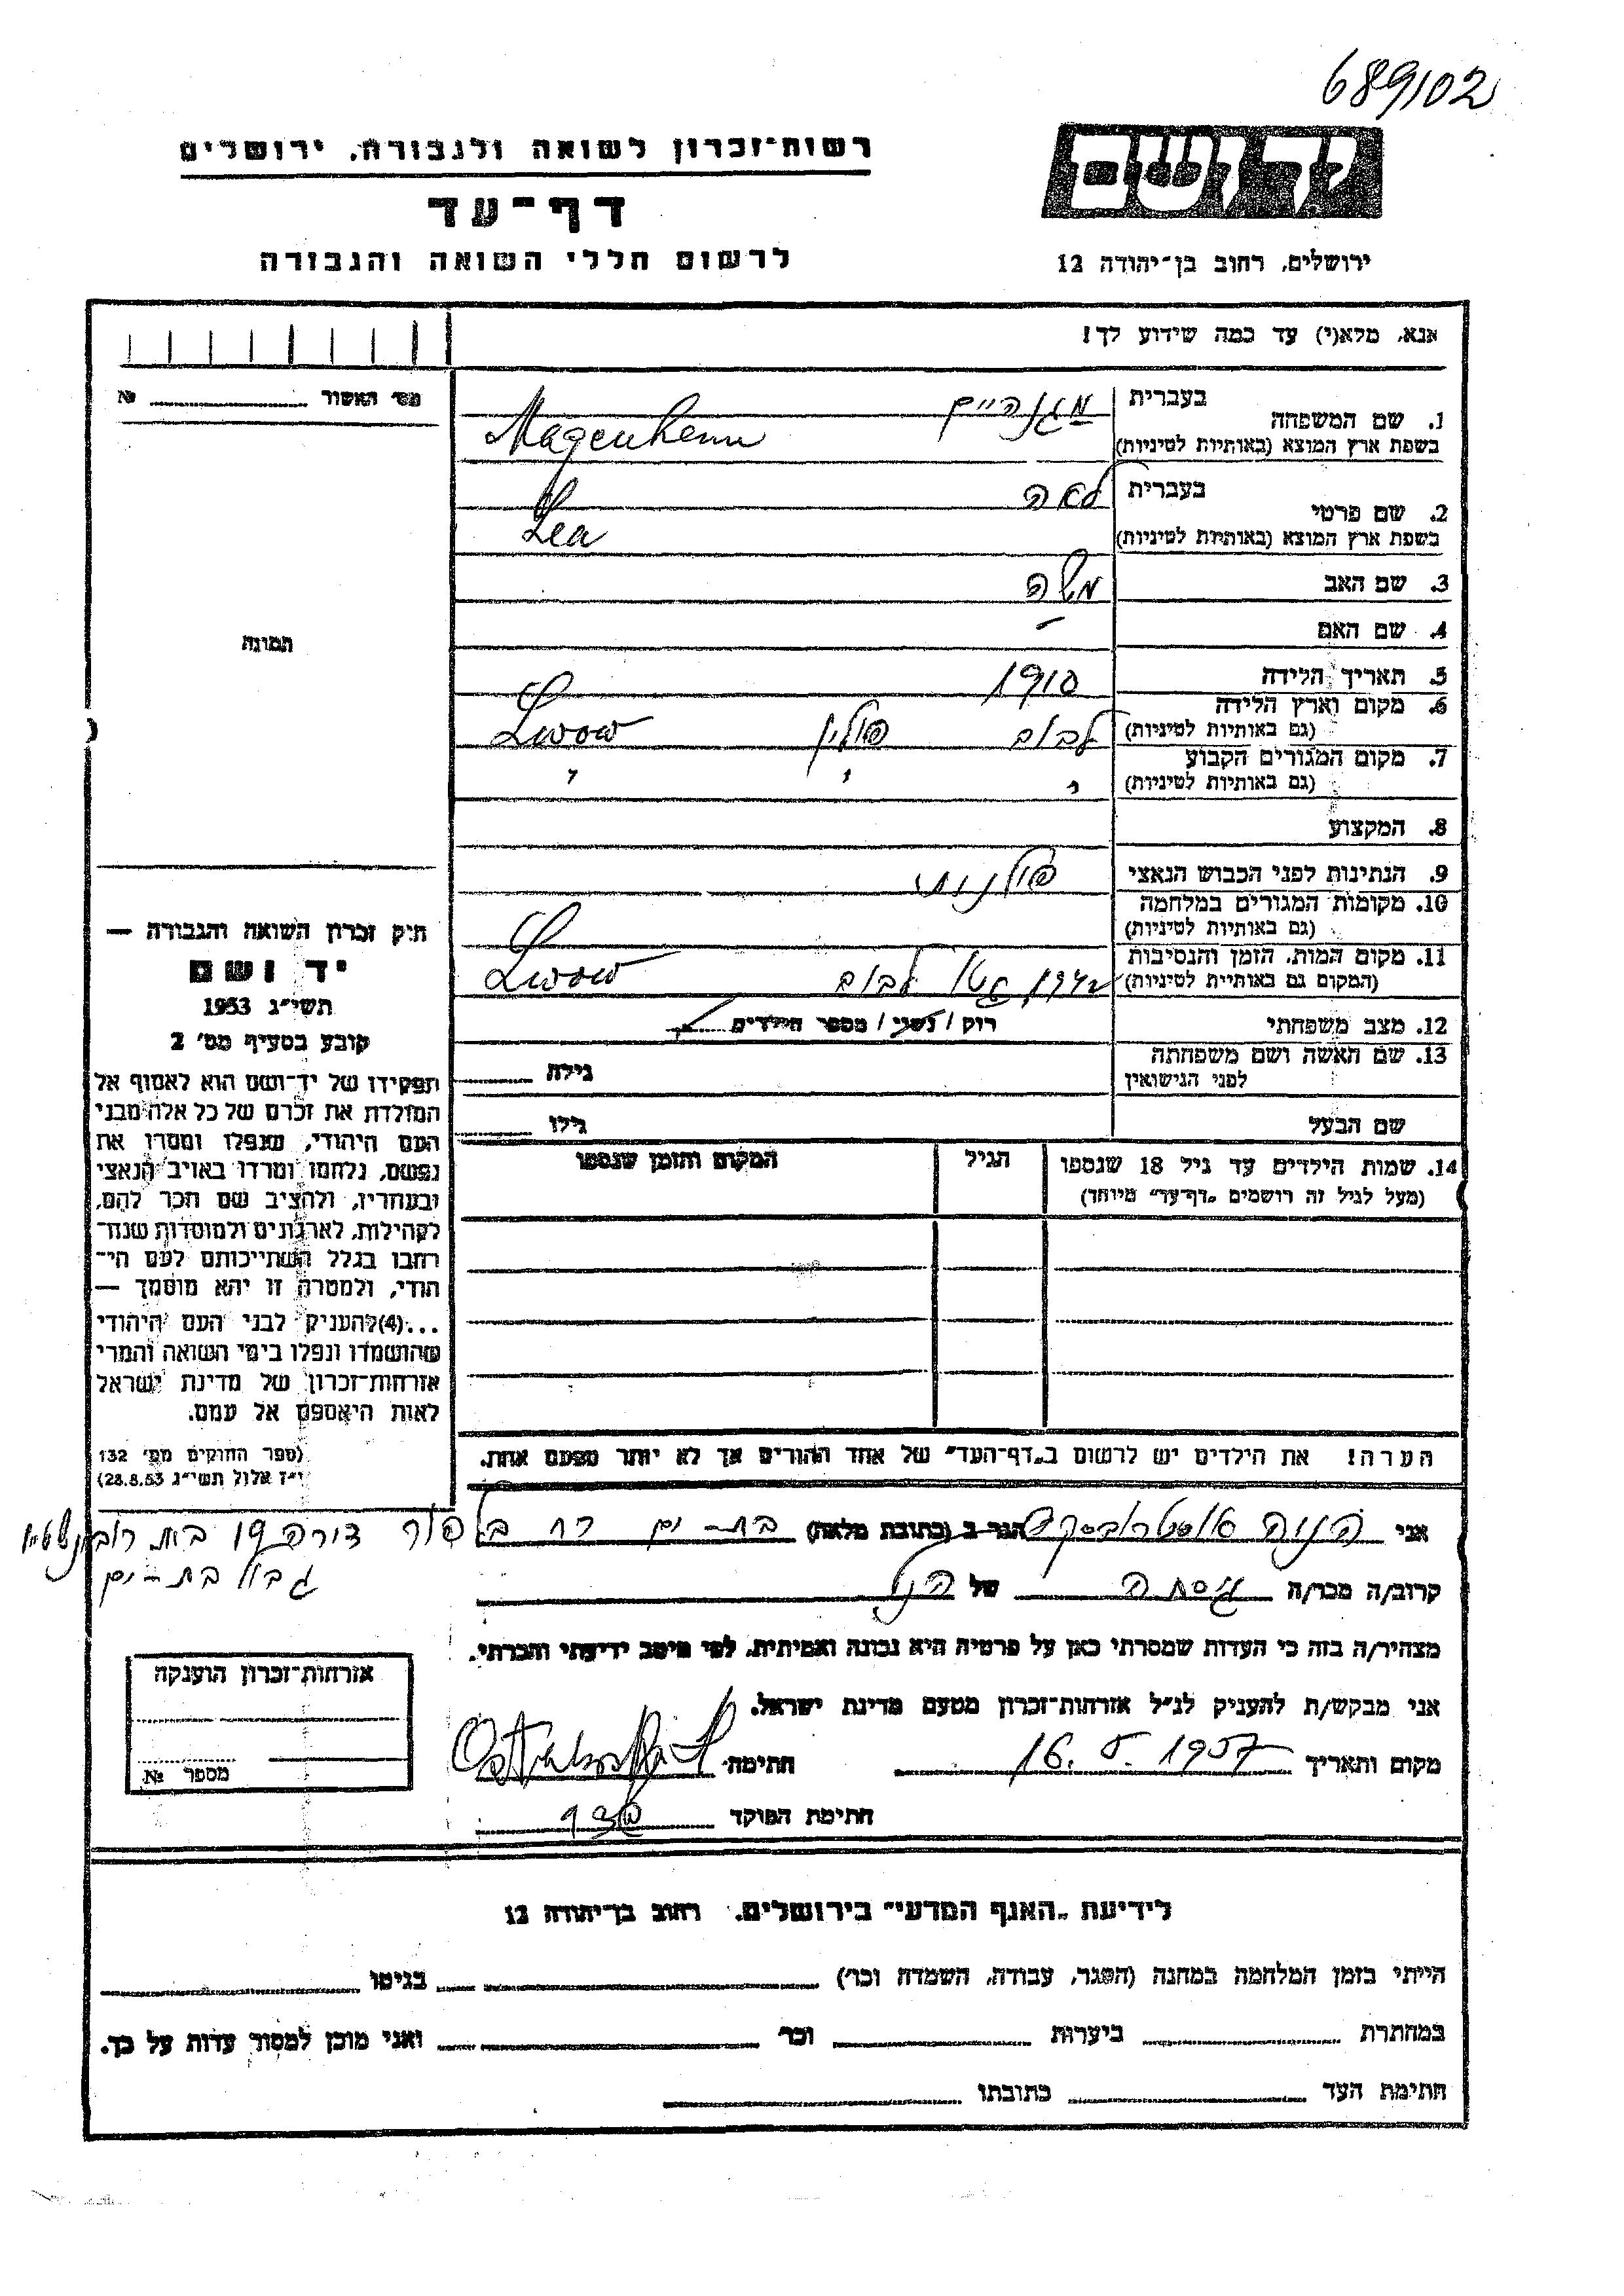 689102
רשות־זכרון לשואה ולגבורה, ירושלים
דף־עד
לרשום חללי השואה והגבורה
יד ושם
ירושלים, רחוב בן־יהודה 12
אנא, מלא(י) עד כמה שידוע לך!
מס׳ האשור №
תמונה
1. שם המשפחה בעברית מגנהיים
בשפת ארץ המוצא (באותיות לטיניות) Magenheim
2. שם פרטי בעברית לאה
בשפת ארץ המוצא (באותיות לטיניות) Lea
3. שם האב משה
4. שם האם -
5. תאריך הלידה 1910
6. מקום וארץ הלידה
(גם באותיות לטיניות) לבוב פולין Lwow
7. מקום המגורים הקבוע
(גם באותיות לטיניות) " " "
8. המקצוע
9. הנתינות לפני הכבוש הנאצי פולנית
10. מקומות המגורים במלחמה
(גם באותיות לטיניות)
11. מקום המות, הזמן והנסיבות
(המקום גם באותיית לטיניות) 1942 גטו לבוב Lwow
12. מצב משפחתי רוק / נשוי / מספר הילדים
13. שם האשה ושם משפחתה
לפני הנישואין גילה
שם הבעל גילו
14. שמות הילדים עד גיל 18 שנספו הגיל המקום והזמן שנספו
(מעל לגיל זה רושמים „דף־עד״ מיוחד)
הערה! את הילדים יש לרשום ב„דף־העד״ של אחד ההורים אך לא יותר מפעם אחת.
חיק זכרון השואה והגבורה —
יד ושם
תשי״ג 1953
קובע בסעיף מס׳ 2
תפקידו של יד־ושם הוא לאסוף אל
המולדת את זכרם של כל אלה מבני
העם היהודי, שנפלו ומסרו את
נפשם, נלחמו ומרדו באויב הנאצי
ובעוזריו, ולהציב שם וזכר להם,
לקהילות, לארגונים ולמוסדות שנח־
רחבו בגלל השתייכותם לעם הי־
הודי, ולמטרה זו יהא מוסמך —
...(4) להעניק לבני העם היהודי
שהושמדו ונפלו בימי השואה והמרי
אזרחות־זכרון של מדינת ישראל
לאות היאספם אל עמם.
(ספר החוקים מס׳ 132
י״ז אלול תשי״ג 28.8.53)
אני הניה אוסטרובסקי הגר ב (כתובת מלאה) בת-ים רח בלפור דירה 19 בית
גבול בת-ים
קרוב/ה מכר/ה גיסתה של הנ״ל
מצהיר/ה בזה כי העדות שמסרתי כאן על פרטיה היא נכונה ואמיתית, לפי מיטב ידיעתי והכרתי.
אני מבקש/ת להעניק לנ״ל אזרחות־זכרון מטעם מדינת ישראל.
מקום ותאריך 16. 5. 1957 חתימה
חתימת הפוקד
אזרחות־זכרון הוענקה
מספר №
לידיעת „האגף המדעי״ בירושלים, רחוב בן־יהודה 12
הייתי בזמן המלחמה במחנה (הסגר, עבודה, השמדה וכר׳) בגיטו
במחתרת ביערות וכר׳ ואני מוכן למסור עדות על כך.
חתימת העד כתובתו